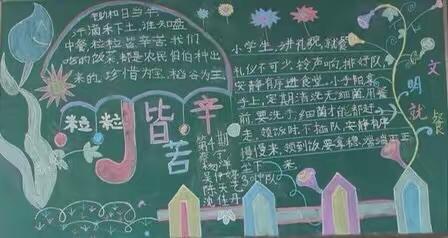 日当午
汗滴禾下土,谁知盘
中餐粒粒皆辛苦。我们
吃的饭菜都是农民伯伯种出
来的,珍惜为宝,稻谷为三
粒粒皆辛苦
小学生,讲礼貌,就餐
礼仪不可少,铃声响,排好队
安静有序进食堂,小手
手上,定期清洗无细菌,用餐
前,要洗手,细菌才能都赶
走,领饭时,不插队,安静有序
慢慢来,领到饭,要拿稳,端端正正
坐下来
文明就餐
杨洋
中队